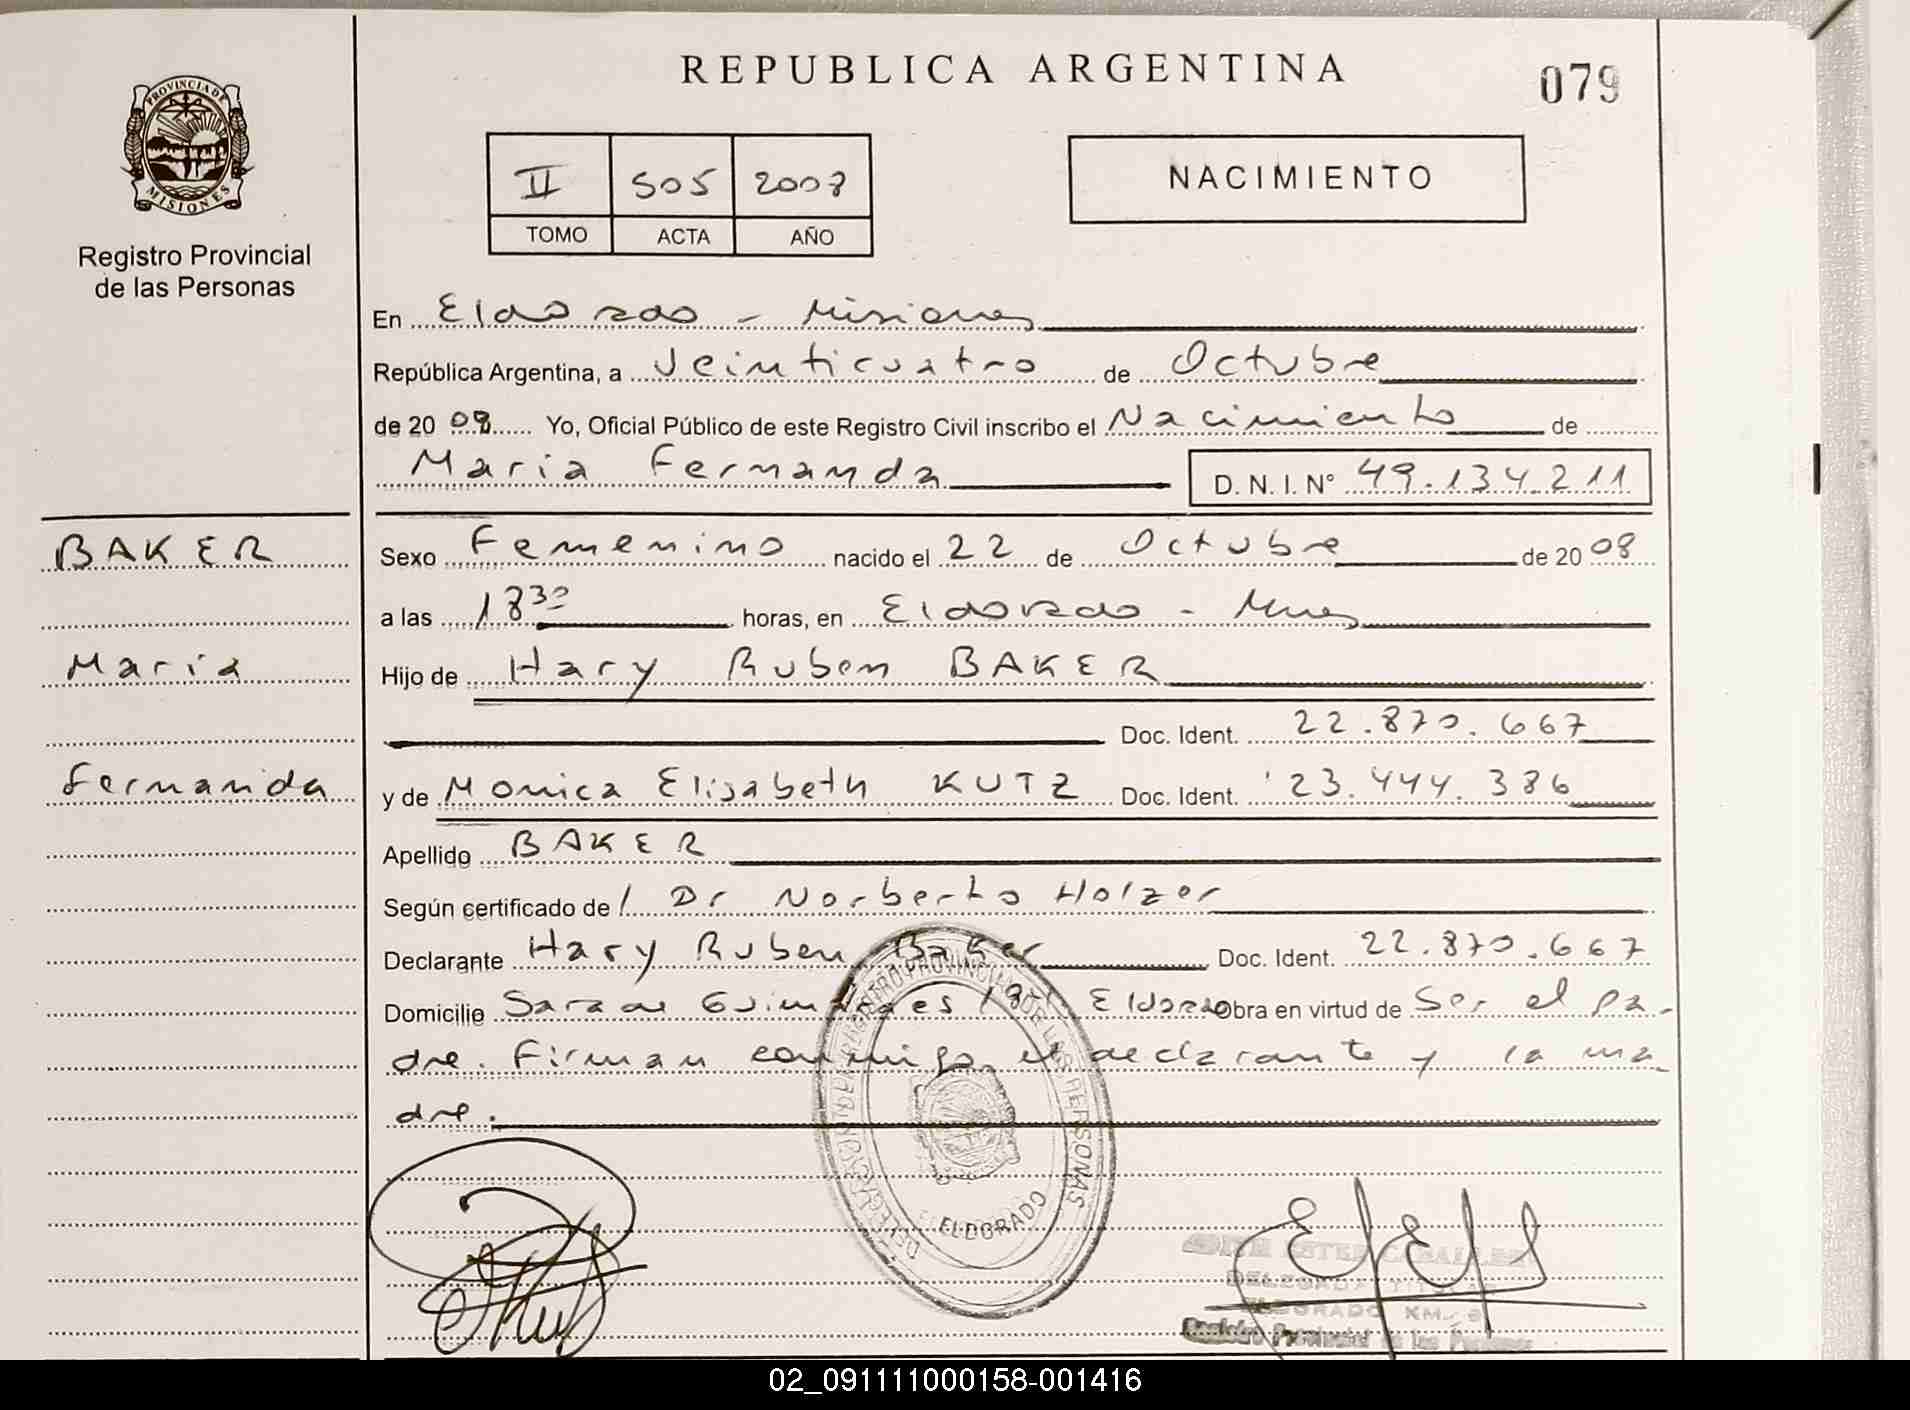 REPUBLICA ARGENTINA
079
PROVINCIA DE
MISIONES
Registro Provincial
de las Personas
II 505 2008
TOMO ACTA AÑO
NACIMIENTO
En Eldorado - Misiones
República Argentina, a Veinticuatro de Octubre
de 20 08 Yo, Oficial Público de este Registro Civil inscribo el Nacimiento de
Maria Fernanda D. N. I. N° 49.134.211
BAKER
Maria
Fernanda
Sexo Femenino nacido el 22 de Octubre de 20 08
a las 18 30 horas, en Eldorado - Mnes
Hijo de Hary Ruben BAKER
Doc. Ident. 22.870.667
y de Monica Elisabeth KUTZ Doc. Ident. 23.444.386
Apellido BAKER
Según certificado de Dr Norberto Holzer
Declarante Hary Ruben Baker Doc. Ident. 22.870.667
Domicilio Sara de Guimaraes Eldorado Obra en virtud de Ser el pa-
dre. Firman conmigo el declarante y la ma-
dre.
DELEGACION DEL REGISTRO PROVINCIAL DE LAS PERSONAS
ELDORADO
DELEGADA TITULAR
ELDORADO KM. 9
Registro Provincial de las Personas
02_091111000158-001416